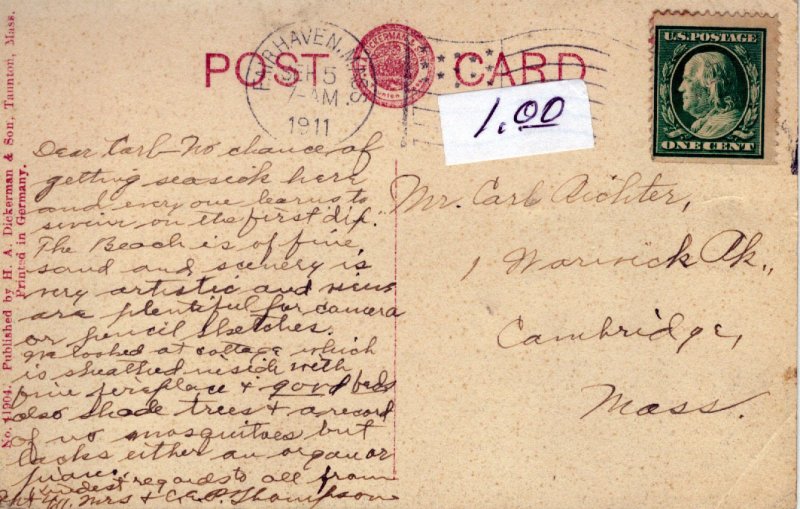 POST CARD
DICKERMAN'S
FAIRHAVEN, MASS.
SEP 5
7-AM
1911
1.00
U.S. POSTAGE
ONE CENT
No. 11904. Published by H. A. Dickerman & Son, Taunton, Mass.
Printed in Germany.
Dear Carl- No chance of
getting seasick here
and every one learns to
swim on the first dip.
The Beach is of fine
sand and scenery is
very artistic and views
are plentiful for camera
or pencil sketches.
We looked at cottage which
is sheathed inside with
fine fireplace & good beds
also shade trees & a record
of no mosquitoes but
lacks either an organ or
piano.
Kindest regards to all from
Mr. Mrs & C.E.P. Thompson
Mr. Carl Richter,
1 Warwick Pk.,
Cambridge,
Mass.